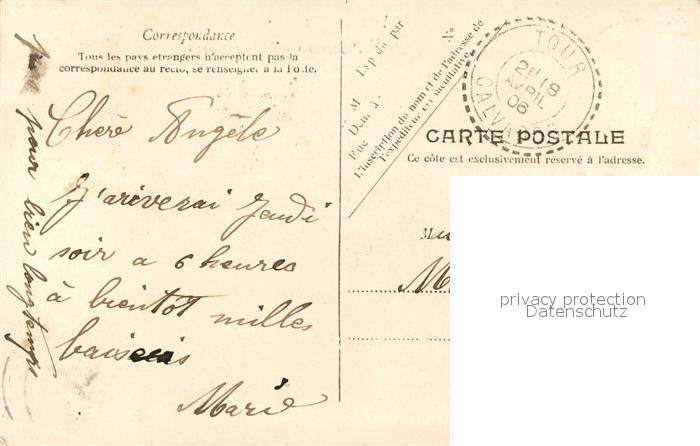 Correspondance
Tous les pays étrangers n'acceptent pas la
correspondance au recto, se renseigner à la Poste.
Chère Angèle
J'ariverai Jeudi
soir a 6 heures
à bientôt milles
Marie
pour bien longtemps
Expédié par
N°
M
Dem. à
Rue
L'inscription du nom et de l'adresse de
l'expéditeur est facultative.
TOUR
18
AVRIL
06
CALVA
CARTE POSTALE
Ce côte est exclusivement réservé à l'adresse.
M
privacy protection
Datenschutz